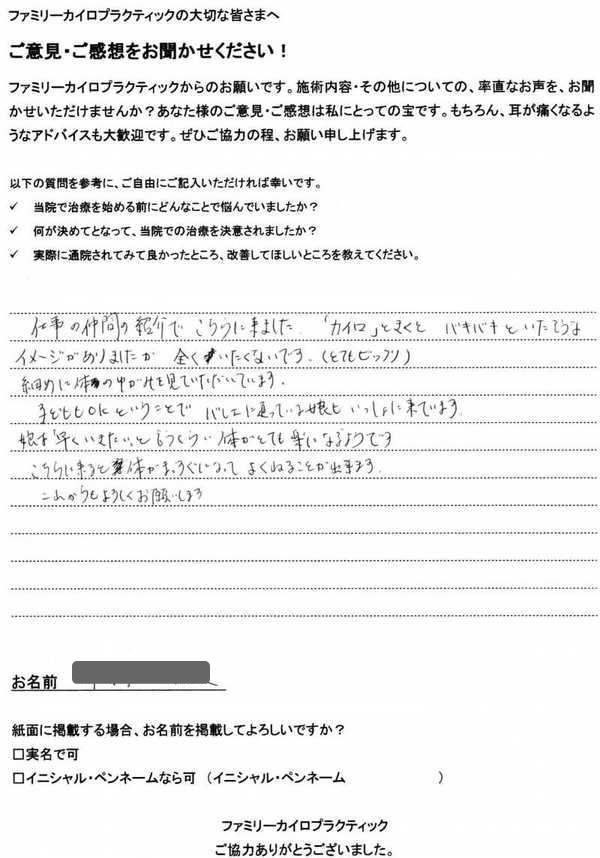 ファミリーカイロプラクティックの大切な皆さまへ
ご意見・ご感想をお聞かせください！
ファミリーカイロプラクティックからのお願いです。施術内容・その他についての、率直なお声を、お聞
かせいただけませんか？あなた様のご意見・ご感想は私にとっての宝です。もちろん、耳が痛くなるよ
うなアドバイスも大歓迎です。ぜひご協力の程、お願い申し上げます。
以下の質問を参考に、ご自由にご記入いただければ幸いです。
✓ 当院で治療を始める前にどんなことで悩んでいましたか？
✓ 何が決めてとなって、当院での治療を決意されましたか？
✓ 実際に通院されてみて良かったところ、改善してほしいところを教えてください。
仕事の仲間の紹介で こちらに来ました. 「カイロ」ときくと バキバキといたそうな
イメージがありましたが 全くいたくないです.（とてもビックリ）
細めに体のゆがみを見ていただいています.
子どももOKということで バレエに通っている娘といっしょに来ています.
娘も「早くいきたい」と言うくらい体がとても楽になるようです
こちらに来ると体がまっすぐになって よくねることが出来ます.
これからもよろしくお願いします
お名前
紙面に掲載する場合、お名前を掲載してよろしいですか？
□実名で可
□イニシャル・ペンネームなら可 （イニシャル・ペンネーム　　　　　　）
ファミリーカイロプラクティック
ご協力ありがとうございました。